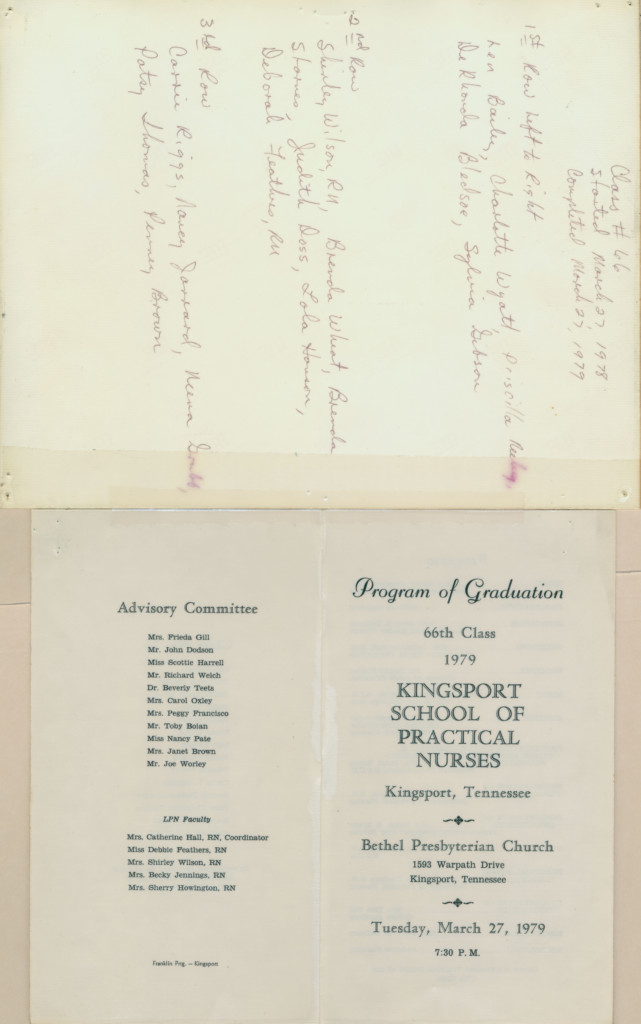 Class # 66
Started March 27, 1978
Completed March 27, 1979
1st Row Left to Right
Len Bailey, Charlotte Wyatt, Priscilla
DeRhonda Bledsoe, Sylvia Gibson
2nd Row
Shirley Wilson, RN, Brenda Wheat, Brenda
Starnes, Judith Doss, Lola Honson,
Deborah Feathers, RN
3rd Row
Carrie Riggs, Nancy Jarrard, Neena
Patsy Thomas, Penney Brown
Program of Graduation
66th Class
1979
KINGSPORT
SCHOOL OF
PRACTICAL
NURSES
Kingsport, Tennessee
Bethel Presbyterian Church
1593 Warpath Drive
Kingsport, Tennessee
Tuesday, March 27, 1979
7:30 P. M.
Advisory Committee
Mrs. Frieda Gill
Mr. John Dodson
Miss Scottie Harrell
Mr. Richard Welch
Dr. Beverly Teets
Mrs. Carol Oxley
Mrs. Peggy Francisco
Mr. Toby Boian
Miss Nancy Pate
Mrs. Janet Brown
Mr. Joe Worley
LPN Faculty
Mrs. Catherine Hall, RN, Coordinator
Miss Debbie Feathers, RN
Mrs. Shirley Wilson, RN
Mrs. Becky Jennings, RN
Mrs. Sherry Howington, RN
Franklin Ptg. — Kingsport